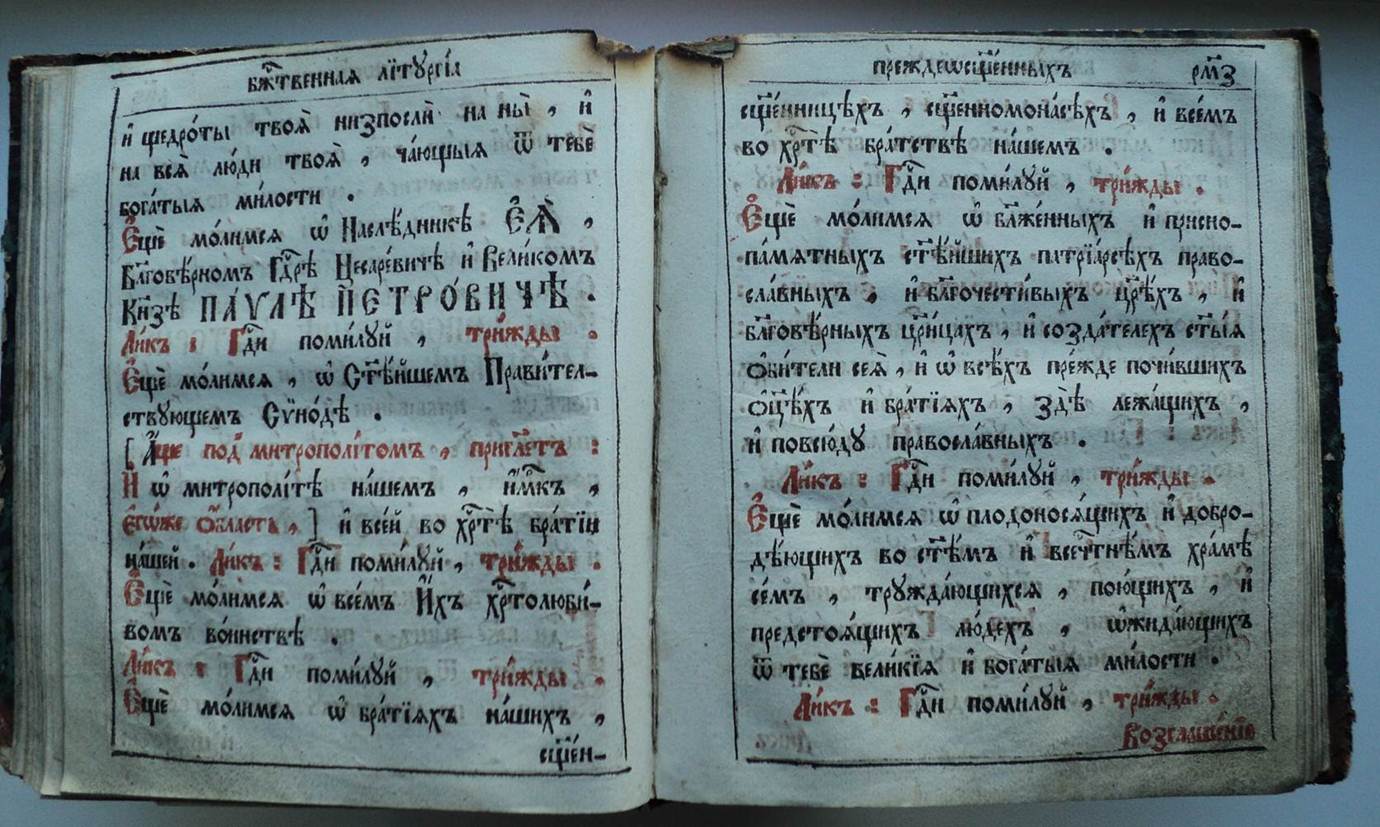 бж҃твенная лїтургі́а
и҆ щедрѡ́ты твоѧ̀ низпослѝ на ны̀ , и҆
на всѧ̀ лю́ди твоѧ̀ , ча́ющыя ѿ тебє̀
бога́тыя ми́лости .
Є҆щѐ мо́лимся ѡ҆ Наслѣ́дникѣ Є҆Ѧ̀ ,
Благовѣ́рномъ Гдⷭ҇рѣ Цесаре́вичѣ и҆ Вели́комъ
Кн҃зѣ ПА́ѴЛѢ ПЕТРО́ВИЧѢ .
Ли́къ : Гдⷭ҇и поми́луй , три́жды .
Є҆щѐ мо́лимся , ѡ҆ Ст҃ѣ́йшемъ Прави́тел-
ствующемъ Сѵно́дѣ .
[ А҆́ще под̾ митрополі́томъ , приглⷭ҇етъ :
И҆ ѡ҆ митрополі́тѣ на́шемъ , и҆мⷬ҇къ ,
є҆гѡ́же ѻ҆́бласть , ] и҆ все́й во хрⷭ҇тѣ̀ бра́тїи
на́шей . Ли́къ : Гдⷭ҇и поми́луй , три́жды .
Є҆щѐ мо́лимся ѡ҆ все́мъ И҆́хъ хрⷭ҇толюби́-
вомъ во́инствѣ .
Ли́къ : Гдⷭ҇и поми́луй , три́жды .
Є҆щѐ мо́лимся ѡ҆ бра́тїяхъ на́шихъ ,
сщ҃е́н-
преждеѡсщ҃е́нныхъ рм҃з
сщ҃е́нницѣхъ , сщ҃енномона́сѣхъ , и҆ все́мъ
во хрⷭ҇тѣ̀ бра́тствѣ на́шемъ .
Ли́къ : Гдⷭ҇и поми́луй , три́жды .
Є҆щѐ мо́лимся ѡ҆ блж҃е́нныхъ и҆ присно-
па́мятныхъ ст҃ѣ́йшихъ патрїа́рсѣхъ право-
сла́вныхъ , и҆ благочести́выхъ цр҃ѣ́хъ , и҆
благовѣ́рныхъ цр҃и́цахъ , и҆ созда́телехъ ст҃ы́я
ѻ҆би́тели сея̀ , и҆ ѡ҆ всѣ́хъ пре́жде почи́вшихъ
ѻ҆ц҃ѣ́хъ и҆ бра́тїяхъ , здѣ̀ лежа́щихъ ,
и҆ повсю́ду правосла́вныхъ .
Ли́къ : Гдⷭ҇и поми́луй , три́жды .
Є҆щѐ мо́лимся ѡ҆ плодонося́щихъ и҆ добро-
дѣ́ющихъ во ст҃ѣ́мъ и҆ всечⷭ҇тнѣ́мъ хра́мѣ
се́мъ , тружда́ющихся , пою́щихъ , и҆
предстоя́щихъ лю́дехъ , ѡ҆жида́ющихъ
ѿ тебє̀ вели́кїя и҆ бога́тыя ми́лости .
Ли́къ : Гдⷭ҇и поми́луй , три́жды .
Возглаше́нїе